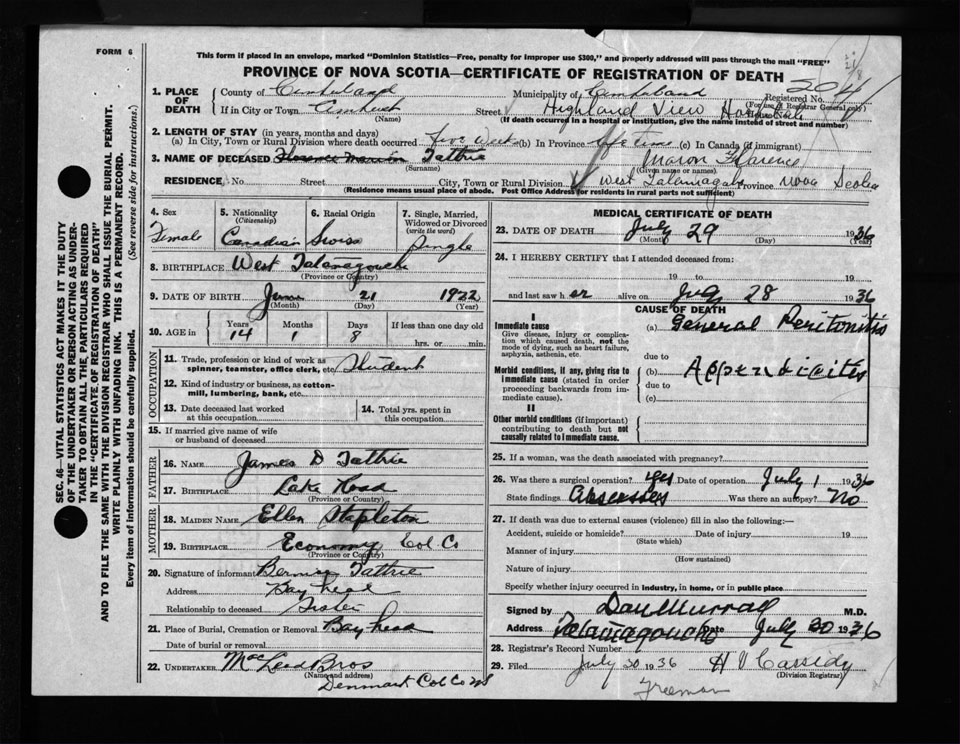 FORM 6
This form if placed in an envelope, marked "Dominion Statistics—Free, penalty for improper use $300," and properly addressed will pass through the mail "FREE"
PROVINCE OF NOVA SCOTIA—CERTIFICATE OF REGISTRATION OF DEATH
204
1. PLACE OF DEATH
County of Cumberland Municipality of Cumberland Registered No.
(For use of Registrar General only)
If in City or Town Amherst Street Highland View Hospital
(Name) (If death occurred in a hospital or institution, give the name instead of street and number)
2. LENGTH OF STAY (in years, months and days)
(a) In City, Town or Rural Division where death occurred five weeks (b) In Province life time (c) In Canada (if immigrant)
3. NAME OF DECEASED Florence Marion Tattrie Marion Florence
(Surname) (Given name or names)
RESIDENCE No. Street City, Town or Rural Division West Tatamagouche Province Nova Scotia
(Residence means usual place of abode. Post Office Address for residents in rural parts not sufficient)
4. Sex
Female
5. Nationality
(Citizenship)
Canadian
6. Racial Origin
Swiss
7. Single, Married, Widowed or Divorced
(write the word)
Single
8. BIRTHPLACE West Tatamagouche
(Province or Country)
9. DATE OF BIRTH June 21 1922
(Month) (Day) (Year)
10. AGE in Years Months Days If less than one day old
14 1 8 hrs. or min.
OCCUPATION
11. Trade, profession or kind of work as spinner, teamster, office clerk, etc. Student
12. Kind of industry or business, as cotton-mill, lumbering, bank, etc.
13. Date deceased last worked at this occupation
14. Total yrs. spent in this occupation
15. If married give name of wife or husband of deceased
FATHER
16. NAME James D Tattrie
17. BIRTHPLACE Lake Road
(Province or Country)
MOTHER
18. MAIDEN NAME Ellen Stapleton
19. BIRTHPLACE Economy Col Co
(Province or Country)
20. Signature of informant Bernice Tattrie
Address Bay head
Relationship to deceased Sister
21. Place of Burial, Cremation or Removal Bay head
Date of burial or removal
22. UNDERTAKER MacLeod Bros
(Name and address)
Denmark Col Co NS
MEDICAL CERTIFICATE OF DEATH
23. DATE OF DEATH July 29 1936
(Month) (Day) (Year)
24. I HEREBY CERTIFY that I attended deceased from:
19 to 19
and last saw her alive on July 28 1936
CAUSE OF DEATH
I
Immediate cause
Give disease, injury or complication which caused death, not the mode of dying, such as heart failure, asphyxia, asthenia, etc.
(a) General Peritonitis
due to
Morbid conditions, if any, giving rise to immediate cause (stated in order proceeding backwards from immediate cause).
(b) Appendicitis
due to
(c)
II
Other morbid conditions (if important) contributing to death but not causally related to immediate cause.
25. If a woman, was the death associated with pregnancy?
26. Was there a surgical operation? yes Date of operation July 1 1936
State findings Abscesses Was there an autopsy? No
27. If death was due to external causes (violence) fill in also the following:—
Accident, suicide or homicide? Date of injury 19
(State which)
Manner of injury
(How sustained)
Nature of injury
Specify whether injury occurred in industry, in home, or in public place
Signed by Dan Murray M.D.
Address Tatamagouche Date July 30 1936
28. Registrar's Record Number
29. Filed July 30 1936 H V Cassidy
(Division Registrar)
Freeman
SEC. 46—VITAL STATISTICS ACT MAKES IT THE DUTY
OF THE UNDERTAKER OR PERSON ACTING AS UNDER-
TAKER TO OBTAIN ALL THE PARTICULARS REQUIRED
IN THE "CERTIFICATE OF REGISTRATION OF DEATH"
AND TO FILE THE SAME WITH THE DIVISION REGISTRAR WHO SHALL ISSUE THE BURIAL PERMIT.
WRITE PLAINLY WITH UNFADING INK. THIS IS A PERMANENT RECORD.
Every item of information should be carefully supplied. (See reverse side for instructions.)